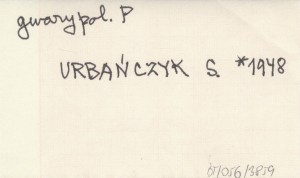 gwary pol. P
URBAŃCZYK S. *1948
05/056/3859